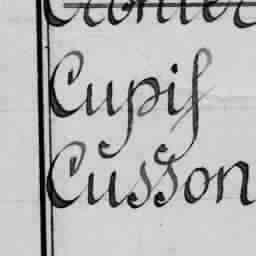 Cupif
Cusson